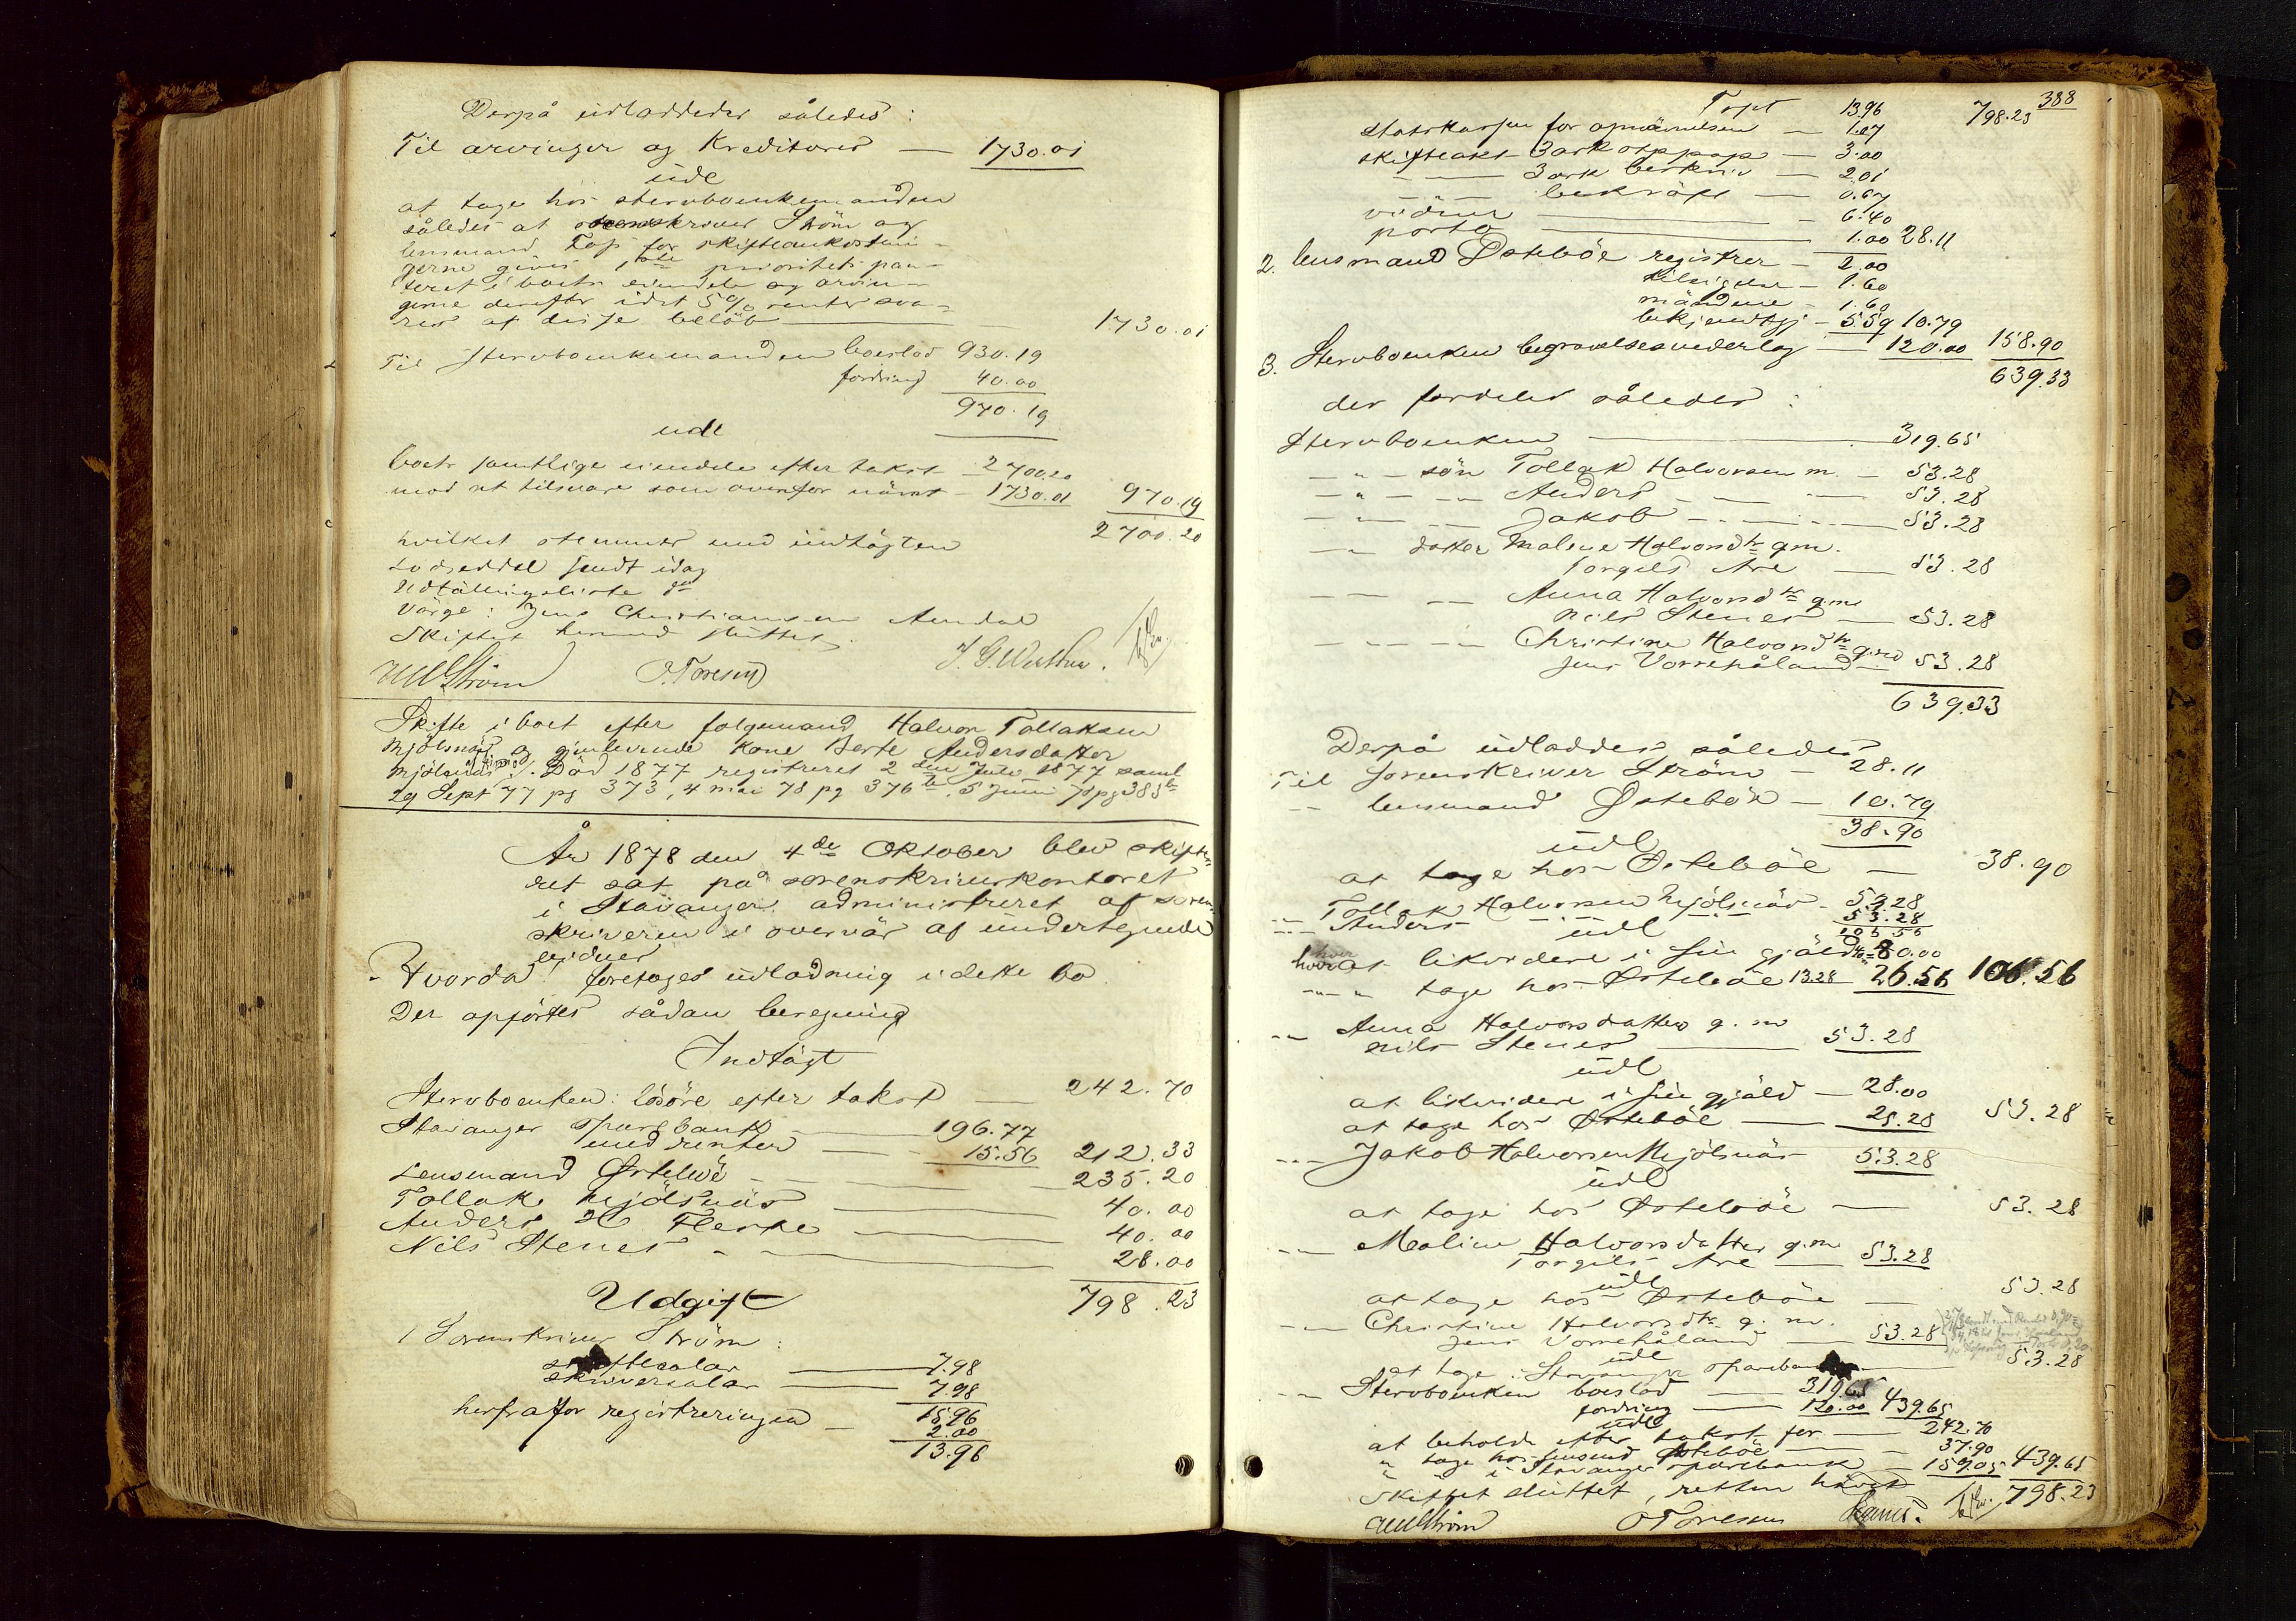 Derpå udloddedes således:
Til arvinger og Kreditorer — 1730.01
udl
at tage hos sterboenkemanden
således at sorenskriver Ström og
lensmand Top for skifteomkostnin-
gerne gives 1ste prioritets pan-
teret i boets eiendele og arvin-
gerne derefter idet 5% renter sva-
res af disse belöb — 1730.01
Til sterboenkemanden boeslod 930.19
fordring 40.00
970.19
udl
boets samtlige eiendele efter takst — 2700.20
mod at tilsvare som ovenfor nävnt — 1730.01 970.19
2700.20
hvilket stemmer med indtägten
Lodseddel sendt idag
Udfällingsliste do
Värge: Jens Christiansen Aendal
Skiftet hermed sluttet.
AWStröm O. Toresen
Skifte i boet efter folgemand Halvor Tollaksen
Mjölsnäs og gjenlevende kone Berte Andersdatter
Mjölsnäs. Död 1877 registreret 2den Juli 1877 saml
29 Sept 77 pg 373, 4 mai 78 pg 376, 5 Juni 78 pg 385
År 1878 den 4de Oktober blev skifte-
ret sat på sorenskriverkontoret
i Stavanger administreret af soren-
skriveren i overvär af undertegnede
vidner
Hvorda foretoges udlodning i dette bo
Der opförtes sådan beregning
Indtägt
Sterboenken: lösöre efter takst — 242.70
Stavanger Sparebank — 196.77
med renter — 15.56 212.33
Lensmand Östeböe — 235.20
Tollak Mjölsnäs — 40.00
Anders H Fleske — 40.00
Nils Stenes — 28.00
798.23
Udgift
1 Sorenskriver Ström:
skiftesalar — 7.98
skriversalar — 7.98
15.96
herfra for registreringen — 2.00
13.96
388
Tspt 13.96 798.23
statskassen for opnävnelsen — 1.07
skifteakt 3 ark stppap — 3.00
— — 3 ark beskriv — 2.01
— — bekräft — 0.67
vidner — 6.40
porto — 1.00 28.11
2. lensmand Östeböe registrer — 2.00
tilsigelse — 1.60
mändene — 1.60
bekjendtgj — 5.59 10.79
3. Sterboenken begravelsesvederlag — 120.00 158.90
639.33
der fordeles således:
Sterboenken — 319.65
— " — sön Tollak Halvorsen m — 53.28
— " — — Anders — — 53.28
— " — — Jakob — — 53.28
— " — datter Malene Halvorsdtr g.m.
Torgils Are — 53.28
— — — Anna Halvorsdtr g.m.
Nils Stenes — 53.28
— — — Christine Halvorsdtr g.m.
Jens Vorrehåland — 53.28
639.33
Derpå udloddes således
Til sorenskriver Ström — 28.11
— lensmand Östeböe — 10.79
38.90
udl
at tage hos Östeböe — 38.90
— Tollak Halvorsen Mjölsnäs — 53.28
— Anders — — 53.28
udl 106.56
hver at likvidere i sin gjäld 40 = 80.00
— " — tage hos Östeböe 13.28 26.56 106.56
— Anna Halvorsdatter g. m
Nils Stenes — 53.28
udl
at likvidere i sin gjäld — 28.00
at tage hos Östeböe — 25.28 53.28
— Jakob Halvorsen Mjölsnäs 53.28
udl
at tage hos Östeböe — 53.28
— Maline Halvorsdatter g.m
Torgils Are — 53.28
udl
at tage hos Östeböe — 53.28
— Christine Halvorsdtr g. m.
Jens Vorrehåland — 53.28
udl
at tage i Stavanger sparebank — 53.28
— Sterboenken boeslod — 319.65
fordring — 120.00 439.65
udl
at beholde efter takst for — 242.70
" tage hos lensmd Östeböe — 37.90
" — i Stavanger sparebank — 159.05 439.65
Skiftet sluttet, retten hävet 798.23
AWStröm O Toresen